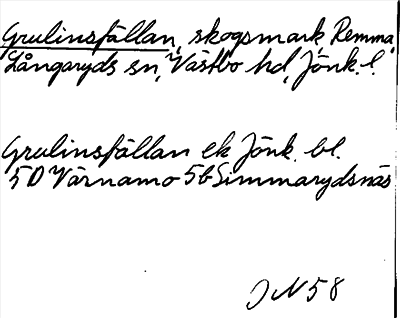 Grulinsfällan, skogsmark, Remma,
Långaryds sn, Västbo hd, Jönk. l.
Grulinsfällan ek Jönk. bl.
5D Värnamo 5b Simmarydsnäs
JN58